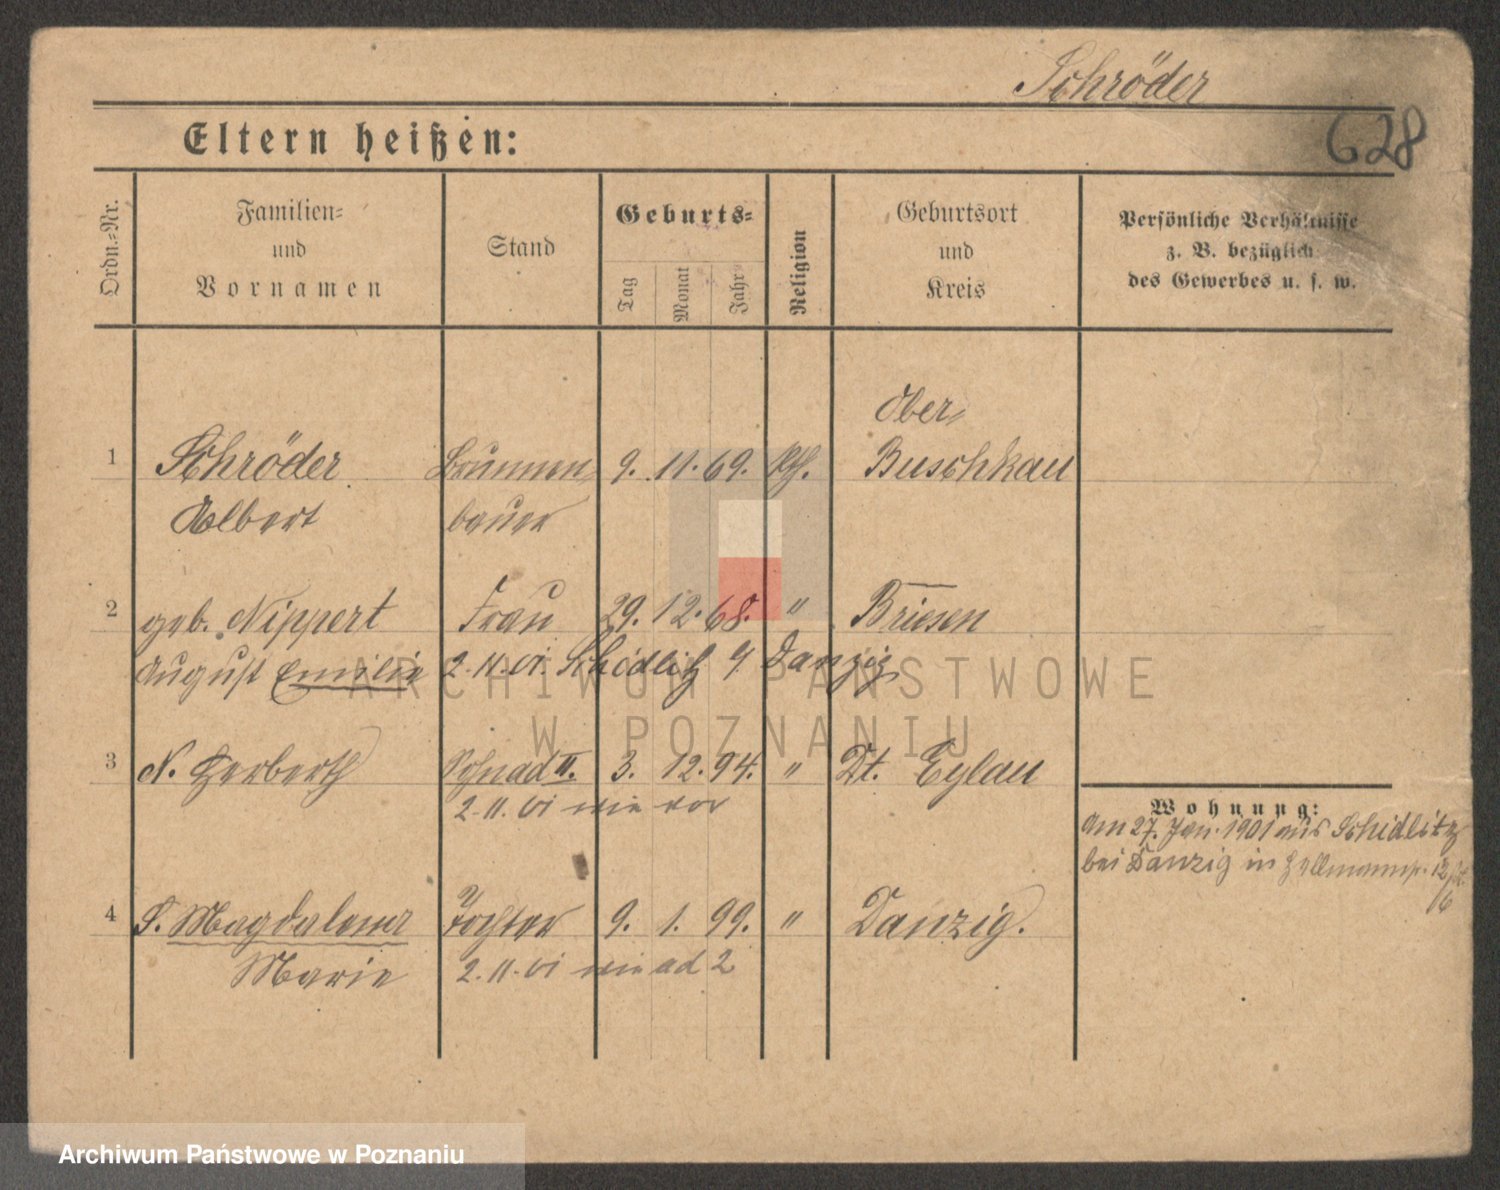 Schröder
Eltern heißen:
628
Ordn.-Nr.
Familien-
und
Vornamen
Stand
Geburts-
Tag
Monat
Jahr
Religion
Geburtsort
und
Kreis
Persönliche Verhältnisse
z. B. bezüglich
des Gewerbes u. s. w.
Ober
1 Schröder Brunnen 9. 11. 69. Kth. Buschkau
Albert bauer
2 geb. Nippert Frau 29. 12. 68. " Briesen
August Emilie 2. 11. 01. Schidlitz Danzig
ARCHIWUM PAŃSTWOWE
W POZNANIU
3 Herberth 3. 12. 94. " Dt. Eylau
2. 11. 01 wie vor
Wohnung:
Am 27. Jan. 1901 aus Schidlitz
bei Danzig in
4 Magdalena Tochter 9. 1. 99. " Danzig.
Marie 2. 11. 01 wie ad 2
Archiwum Państwowe w Poznaniu